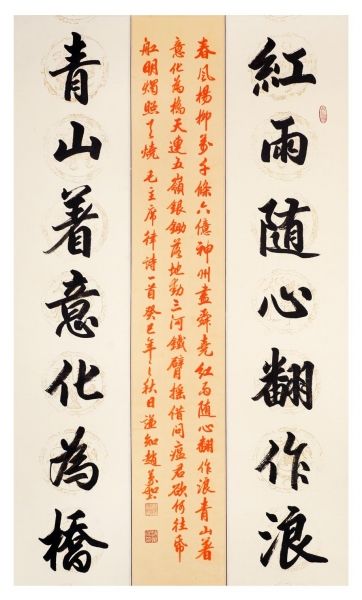 紅雨随心翻作浪
春風楊柳萬千條六億神州盡舜堯紅雨随心翻作浪青山着
意化為橋天連五嶺銀鋤落地動三河鐵臂摇借問瘟君欲何往帋
船明燭照天燒 毛主席律詩一首癸巳年之秋日
青山着意化為橋